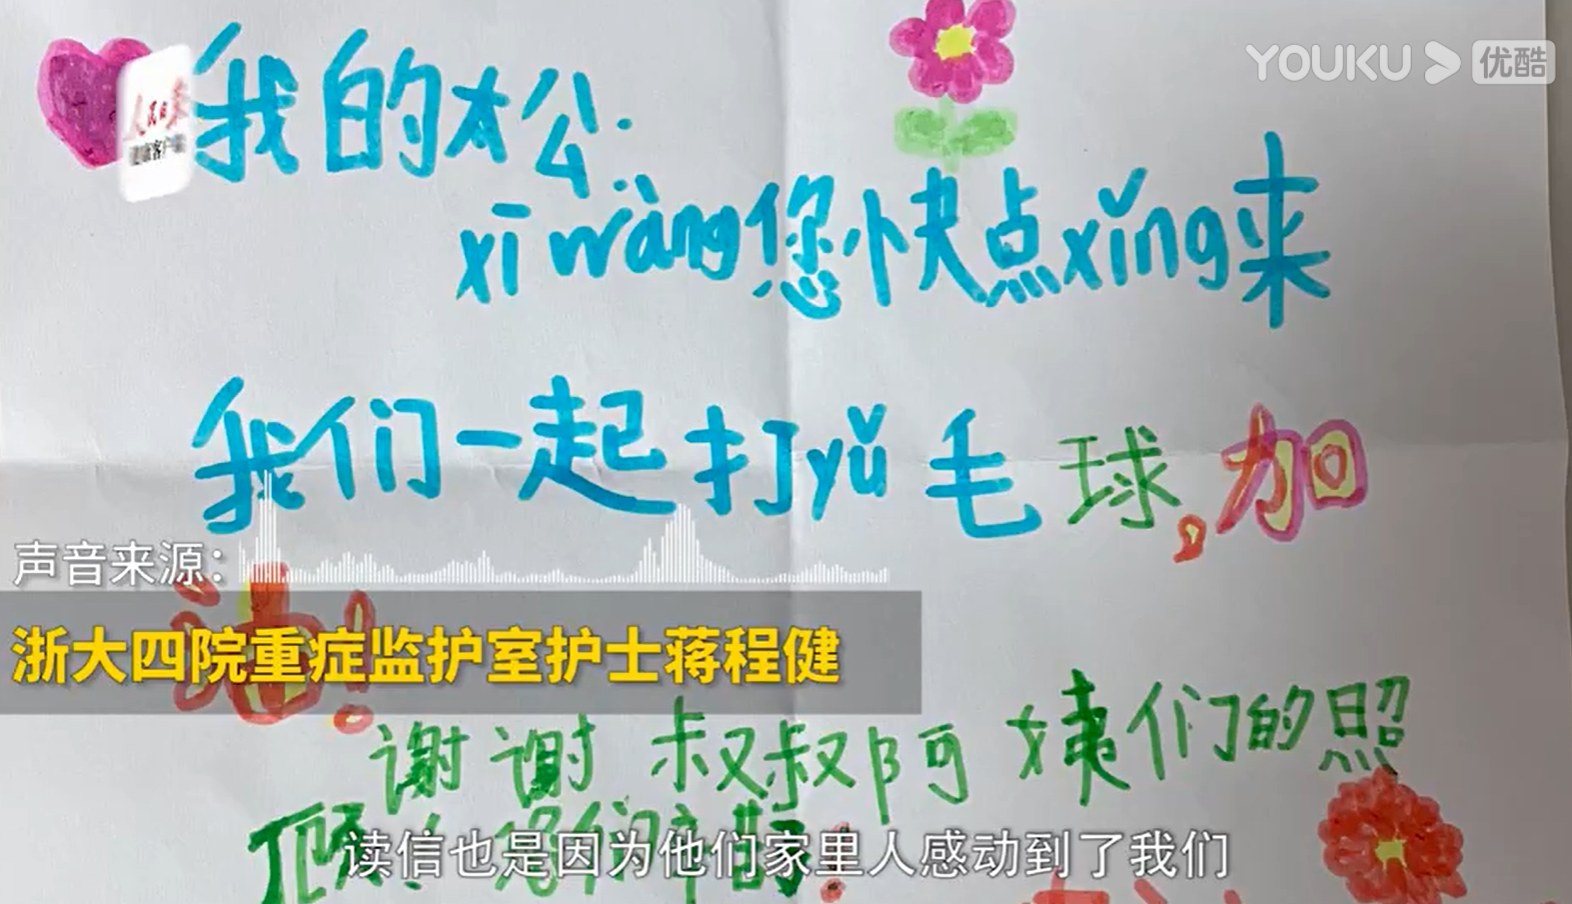 YOUKU 优酷
人民日报
健康客户端
我的木公.
xī wàng您快点xǐng来
我们一起打yǔ毛球,加
油!
声音来源:
浙大四院重症监护室护士蒋程健
谢谢叔叔阿姨们的照
顾,您们辛
读信也是因为他们家里人感动到了我们